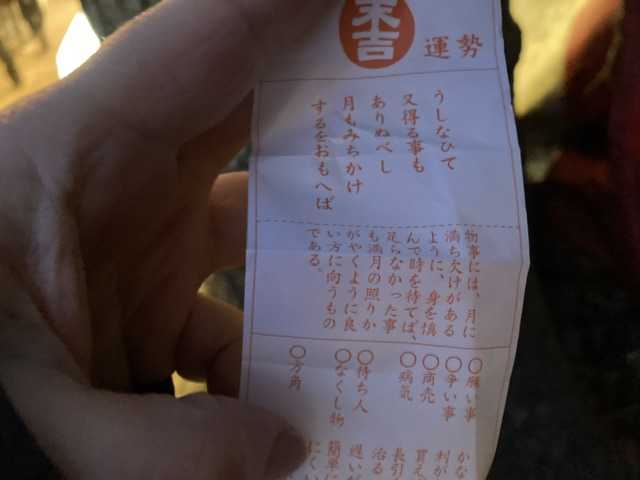 末吉
運勢
うしなひて
又得る事も
ありぬべし
月もみちかけ
するをおもへば
物事には、月に
満ち欠けがある
ように、身を慎
んで時を待てば、
足らなかった事
も満月の照りか
がやくように良
い方に向うもの
である。
〇願い事 かな
〇争い事 利が
〇商売 買え
〇病気 長引
治る
〇待ち人 遅いが
〇なくし物 簡単に
にくい
〇方角